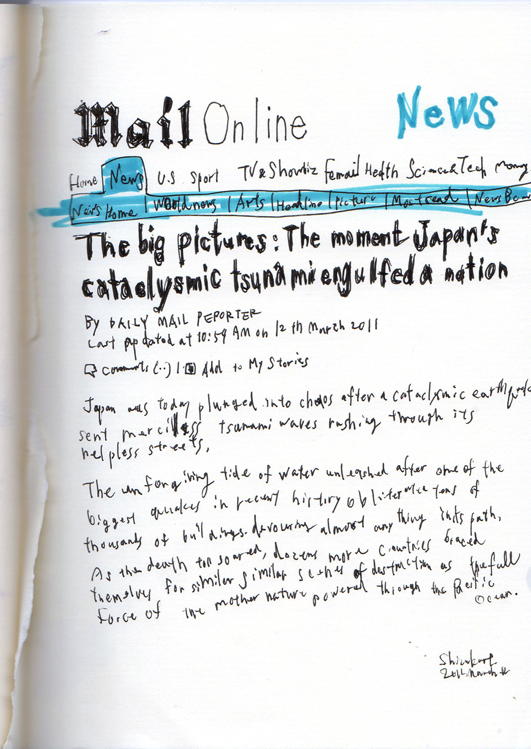 Mail Online News
Home News U.S Sport TV & Showbiz Femail Health Science & Tech Money
News Home World news Arts Headline Picture Most read News Board
The big pictures: The moment Japan's
cataclysmic tsunami engulfed a nation
BY DAILY MAIL REPORTER
Last updated at 10:59 AM on 12th March 2011
comments (..) Add to My Stories
Japan was today plunged into chaos after a cataclysmic earthquake
sent merciless tsunami waves rushing through its
helpless streets,
The unforgiving tide of water unleashed after one of the
biggest quakes in recent history obliterate tens of
thousands of buildings. devouring almost any thing in its path,
As the death toll soared, dozens more countries braced
themselves for similar similar scenes of destruction as the full
force of the mother nature powered through the Pacific
Ocean.